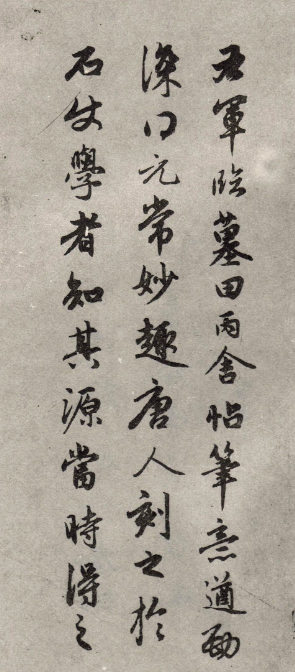 右軍臨墓田丙舍帖筆意遒勁
深得元常妙趣唐人刻之於
石使學者知其源當時得之